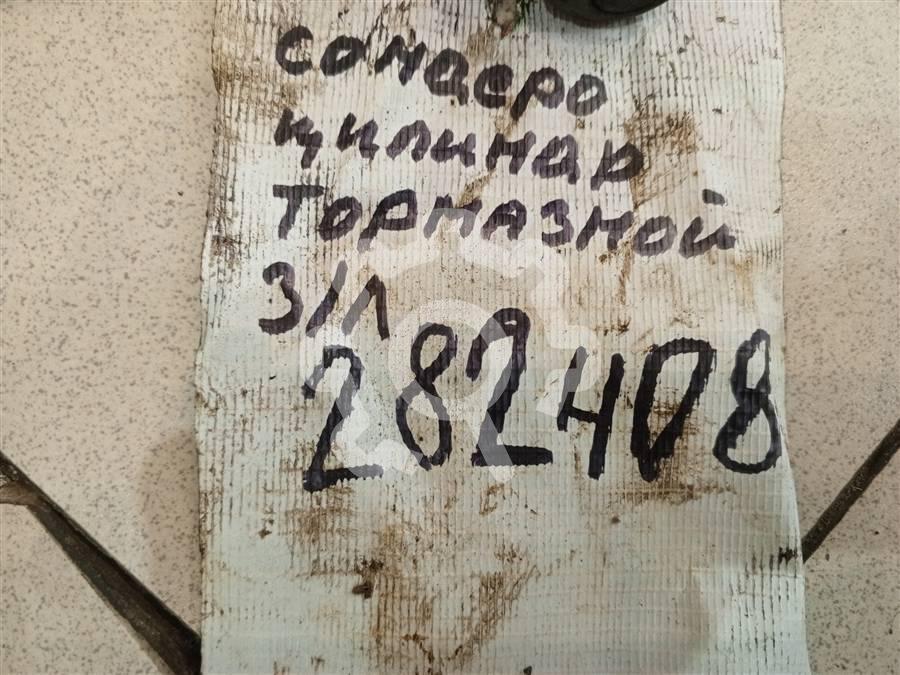 сондеро
цилиндр
тормазной
З/Л
282408